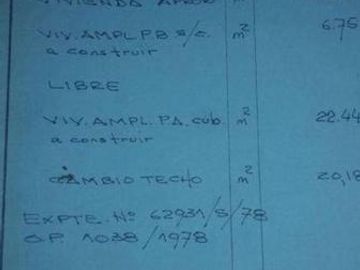 VIVIENDA APROB m
VIV. AMPL PB s/c. m² 6.75
a construir
LIBRE
VIV. AMPL. PA. cub. m² 22.44
a construir
CAMBIO TECHO m² 20,18
EXPTE. Nº 62931/S/78
O.P. 1038/1978